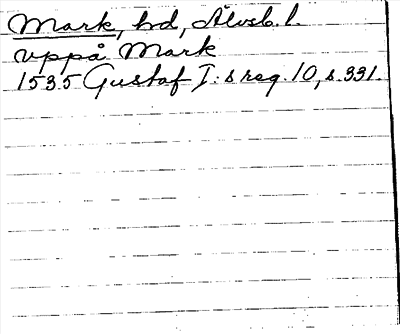 Mark, hd, Älvsb. l.
uppå Mark
1535 Gustaf I:s reg. 10, s. 331.